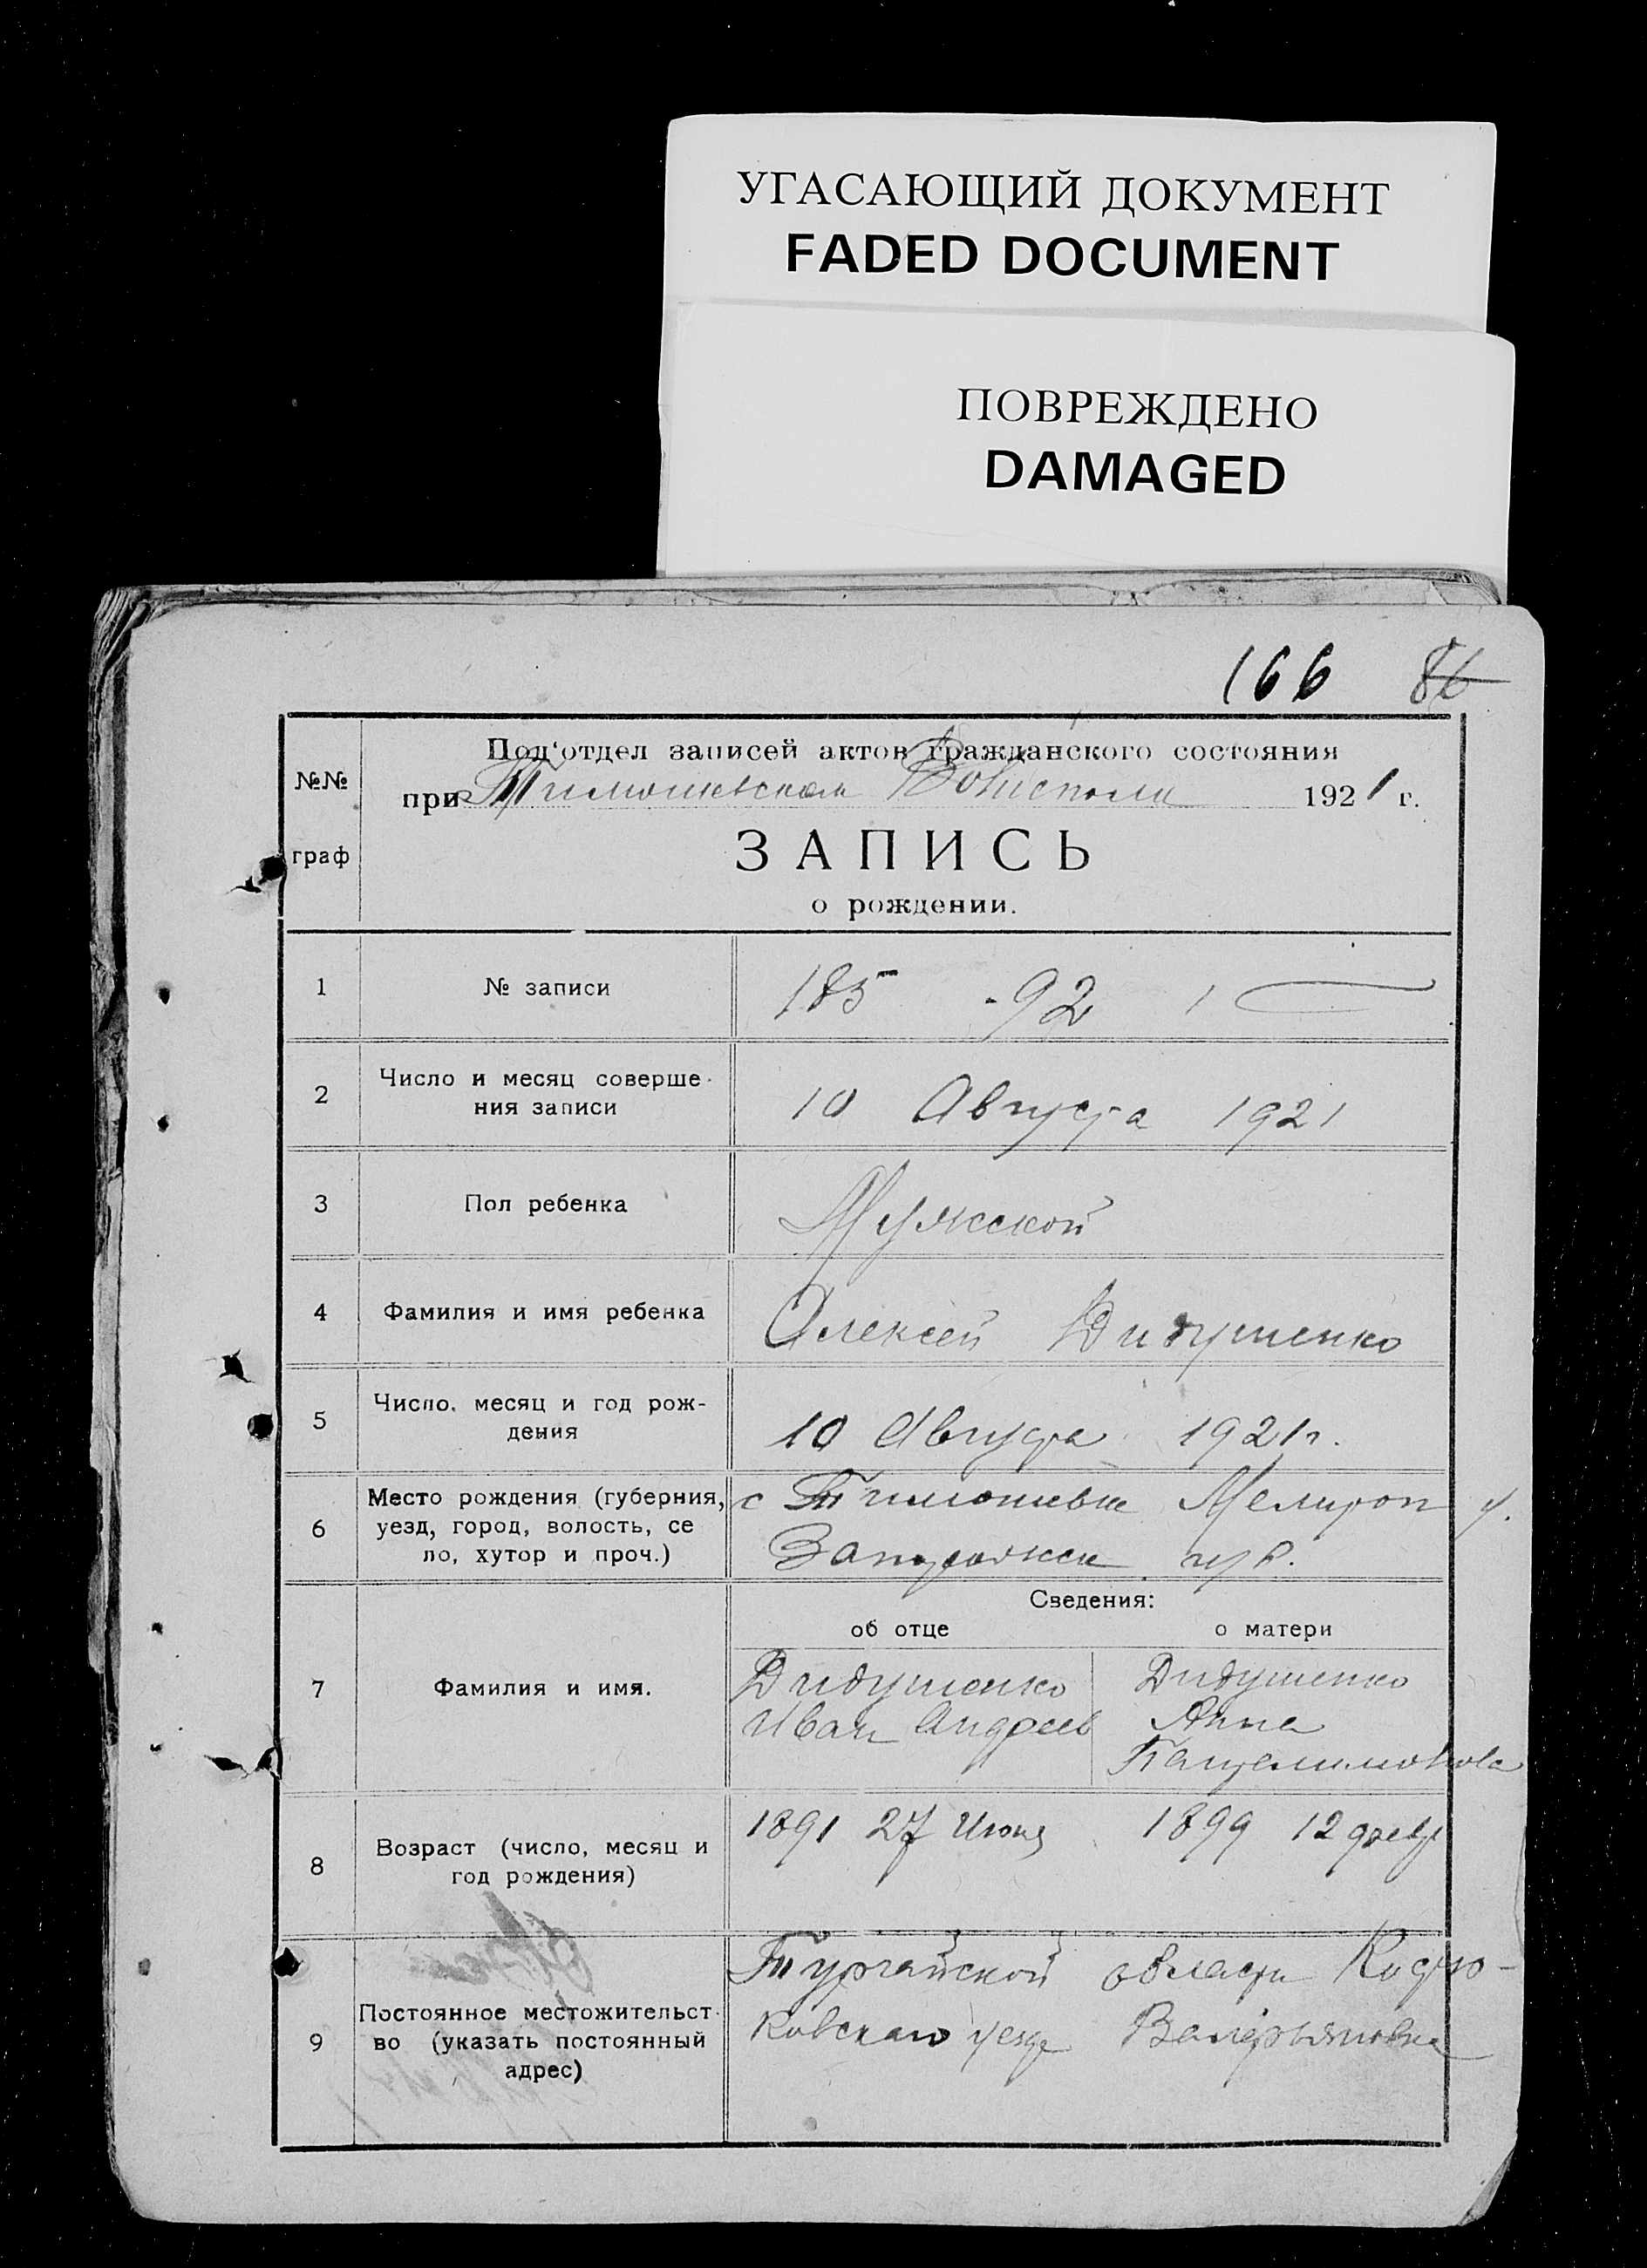 УГАСАЮЩИЙ ДОКУМЕНТ
FADED DOCUMENT
ПОВРЕЖДЕНО
DAMAGED
166 86
№№
граф
Под'отдел записей актов гражданского состояния
при Тимошевском Волисполк 1921 г.
ЗАПИСЬ
о рождении.
1 № записи 185 - 92
2 Число и месяц соверше-
ния записи 10 Августа 1921
3 Пол ребенка Мужской
4 Фамилия и имя ребенка Алексей Дидушенко
5 Число, месяц и год рож-
дения 10 Августа 1921 г.
6 Место рождения (губерния, с Тимошевке Мелитоп у.
уезд, город, волость, се
ло, хутор и проч.) Запорожск губ.
Сведения:
об отце о матери
7 Фамилия и имя. Дидушенко Дидушенко
Иван Андреев Анна
Пантелимонова
8 Возраст (число, месяц и 1891 27 Июня 1899 12 февр
год рождения)
9 Постоянное местожительст-
во (указать постоянный
адрес)
Тургайской области
уезда